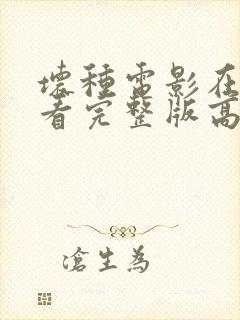 壞種電影在
看完整版高
滄生為